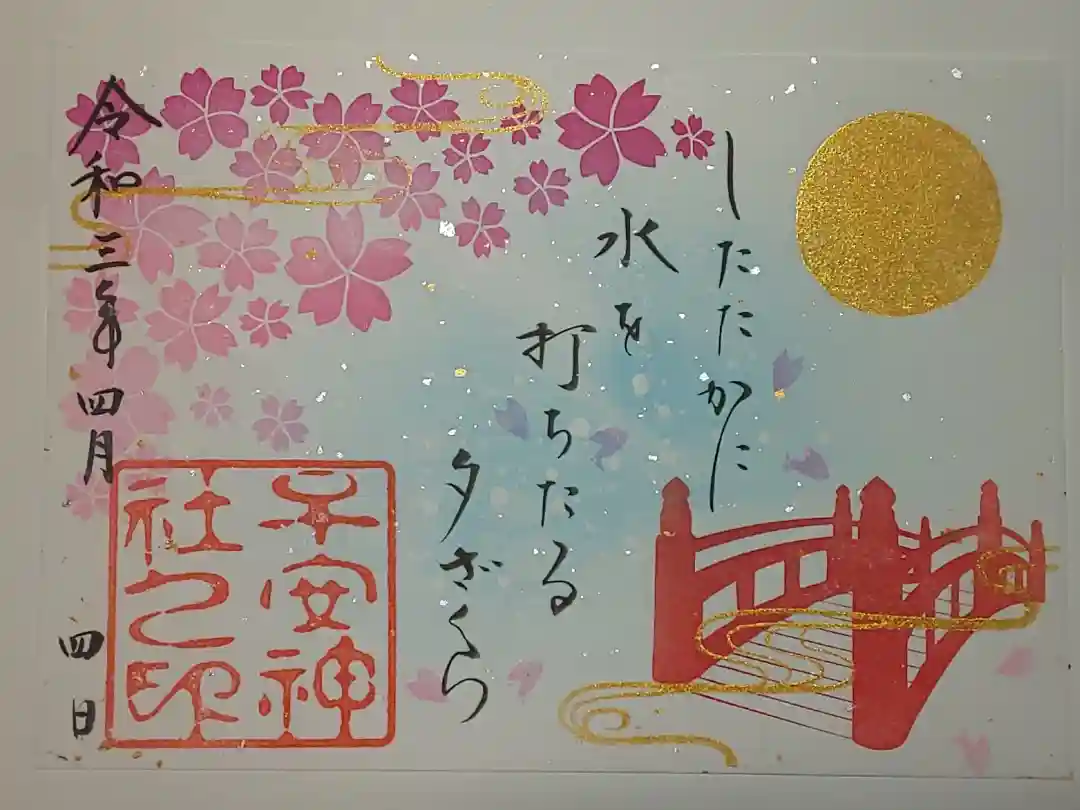 したたかに
水を
打ちたる
夕ざくら
令和三年四月
四日
子安神
社之印